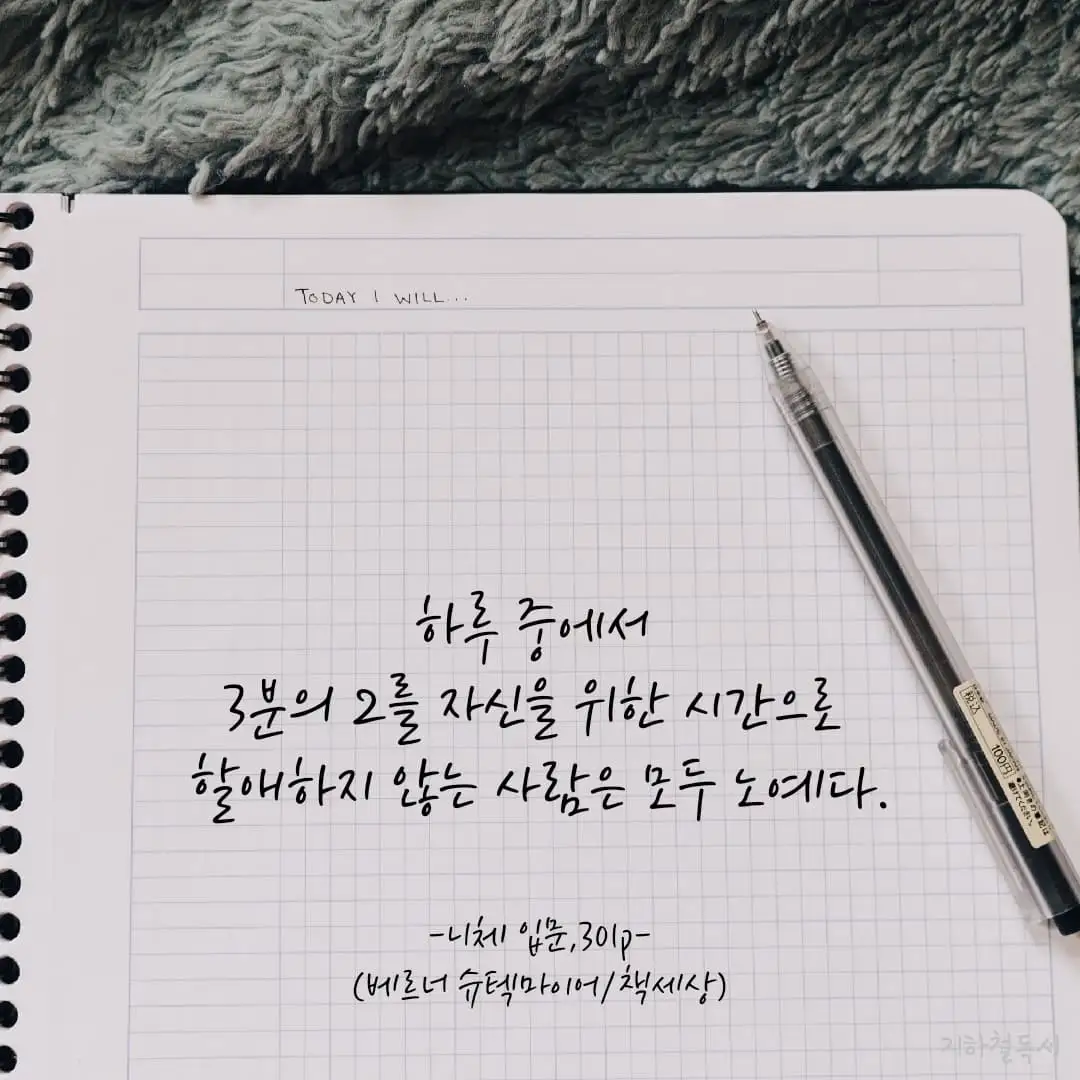 TODAY I WILL...
하루 중에서
3분의 2를 자신을 위한 시간으로
할애하지 않는 사람은 모두 노예다.
-니체 입문,301p-
(베르너 슈텍마이어/책세상)
税込
100円
지하철독서